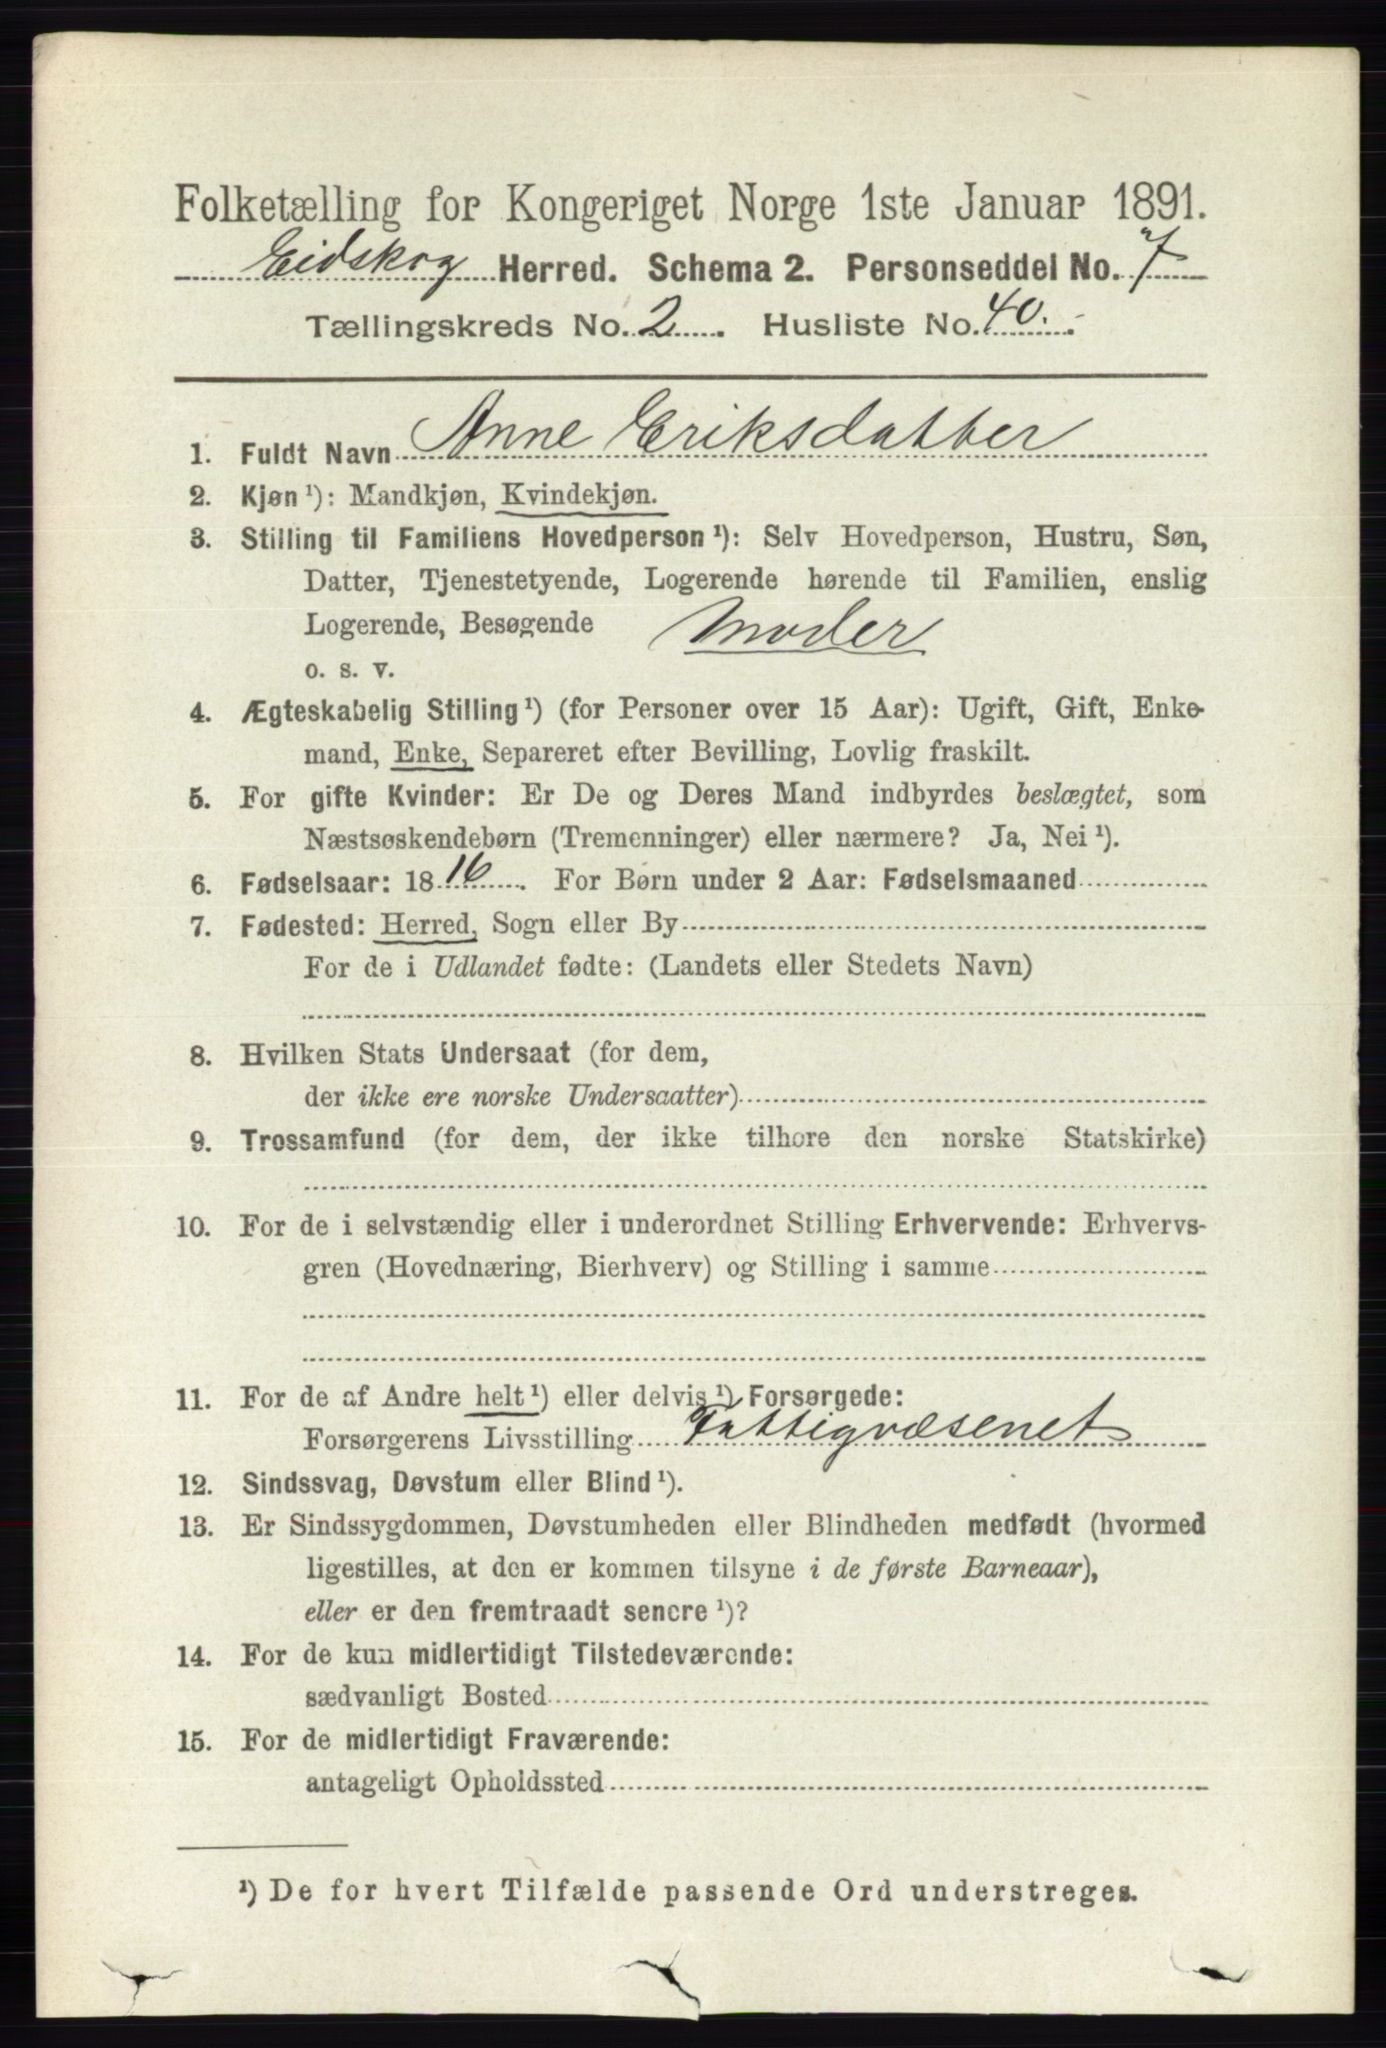 Folketælling for Kongeriget Norge 1ste Januar 1891.
Eidskog Herred. Schema 2. Personseddel No. 7
Tællingskreds No. 2. Husliste No. 40.
1. Fuldt Navn Anne Eriksdatter
2. Kjøn ¹): Mandkjøn, Kvindekjøn.
3. Stilling til Familiens Hovedperson ¹): Selv Hovedperson, Hustru, Søn,
Datter, Tjenestetyende, Logerende hørende til Familien, enslig
Logerende, Besøgende Moder
o. s. v.
4. Ægteskabelig Stilling ¹) (for Personer over 15 Aar): Ugift, Gift, Enke-
mand, Enke, Separeret efter Bevilling, Lovlig fraskilt.
5. For gifte Kvinder: Er De og Deres Mand indbyrdes beslægtet, som
Næstsøskendebørn (Tremenninger) eller nærmere? Ja, Nei ¹).
6. Fødselsaar: 1816. For Børn under 2 Aar: Fødselsmaaned
7. Fødested: Herred, Sogn eller By
For de i Udlandet fødte: (Landets eller Stedets Navn)
8. Hvilken Stats Undersaat (for dem,
der ikke ere norske Undersaatter)
9. Trossamfund (for dem, der ikke tilhøre den norske Statskirke)
10. For de i selvstændig eller i underordnet Stilling Erhvervende: Erhvervs-
gren (Hovednæring, Bierhverv) og Stilling i samme
11. For de af Andre helt ¹) eller delvis ¹) Forsørgede:
Forsørgerens Livsstilling Fattigvæsenet
12. Sindssvag, Døvstum eller Blind ¹).
13. Er Sindssygdommen, Døvstumheden eller Blindheden medfødt (hvormed
ligestilles, at den er kommen tilsyne i de første Barneaar),
eller er den fremtraadt senere ¹)?
14. For de kun midlertidigt Tilstedeværende:
sædvanligt Bosted
15. For de midlertidigt Fraværende:
antageligt Opholdssted
¹) De for hvert Tilfælde passende Ord understreges.